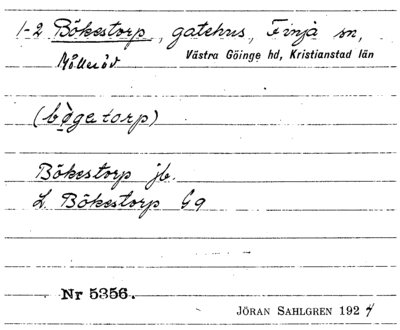 1-2 Bökestorp, gatehus, Finja sn,
Mölleröd Västra Göinge hd, Kristianstad län
(bø̀gatorp)
Bökestorp jb.
L. Bökestorp Gq
Nr 5356.
JÖRAN SAHLGREN 1924